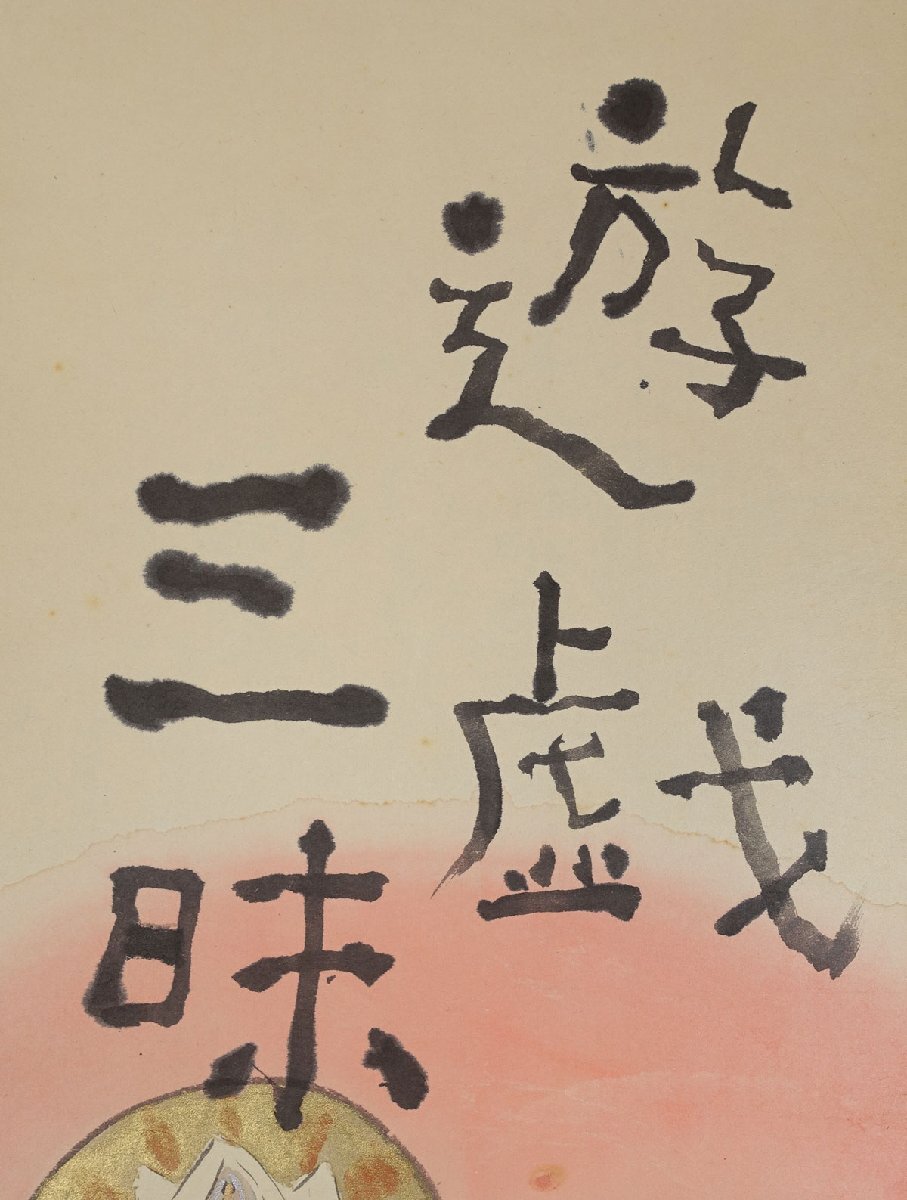 遊戯
三昧